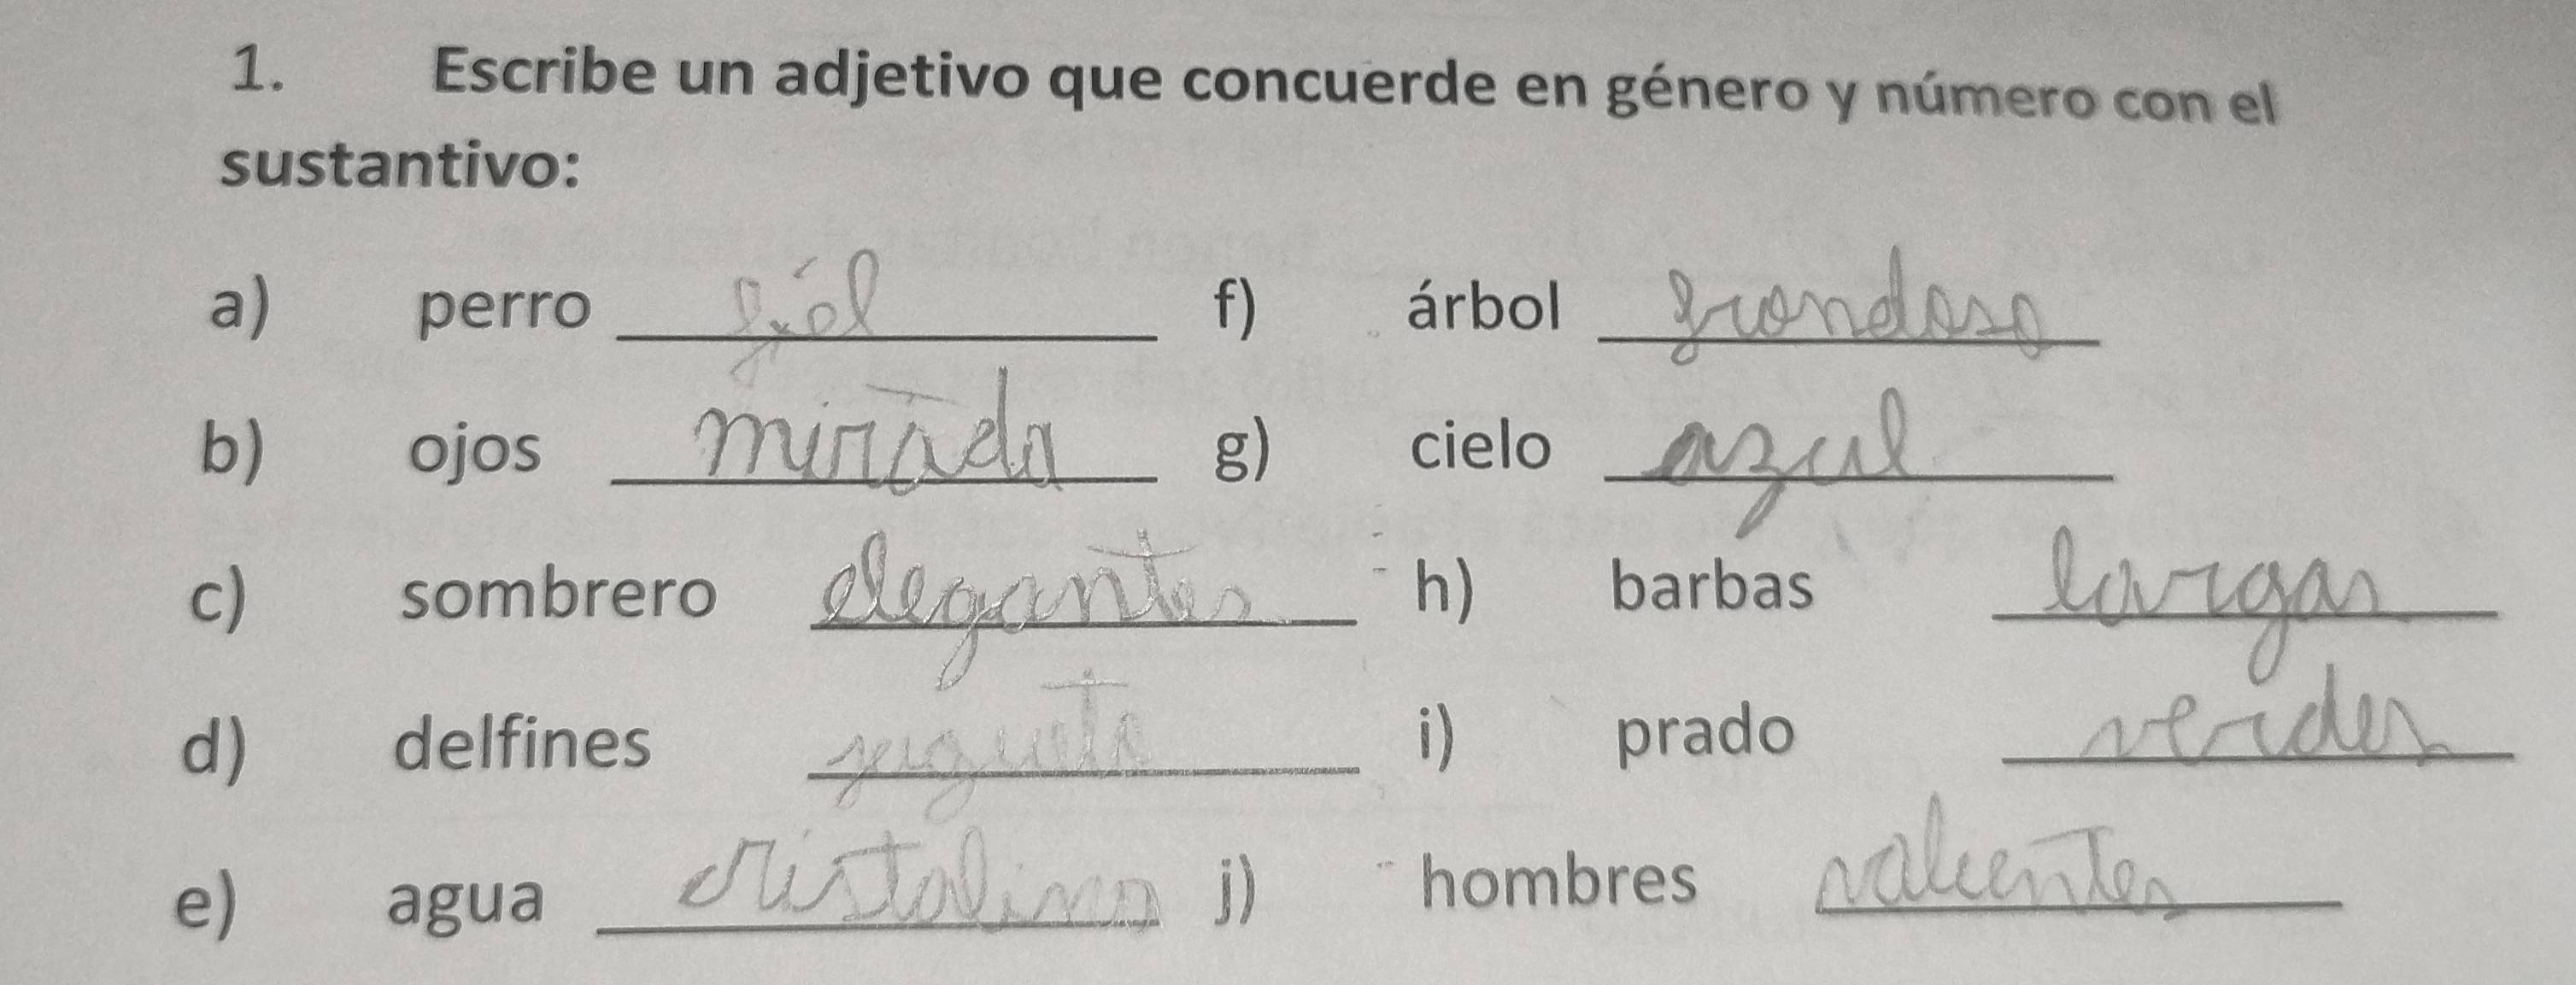 1. Escribe un adjetivo que concuerde en género y número con el
sustantivo:
a) perro fiél f) árbol frondoso
b) ojos mirada g) cielo azul
c) sombrero elegantes h) barbas largas
d) delfines i) prado verdes
e) agua cristalino j) hombres valientes